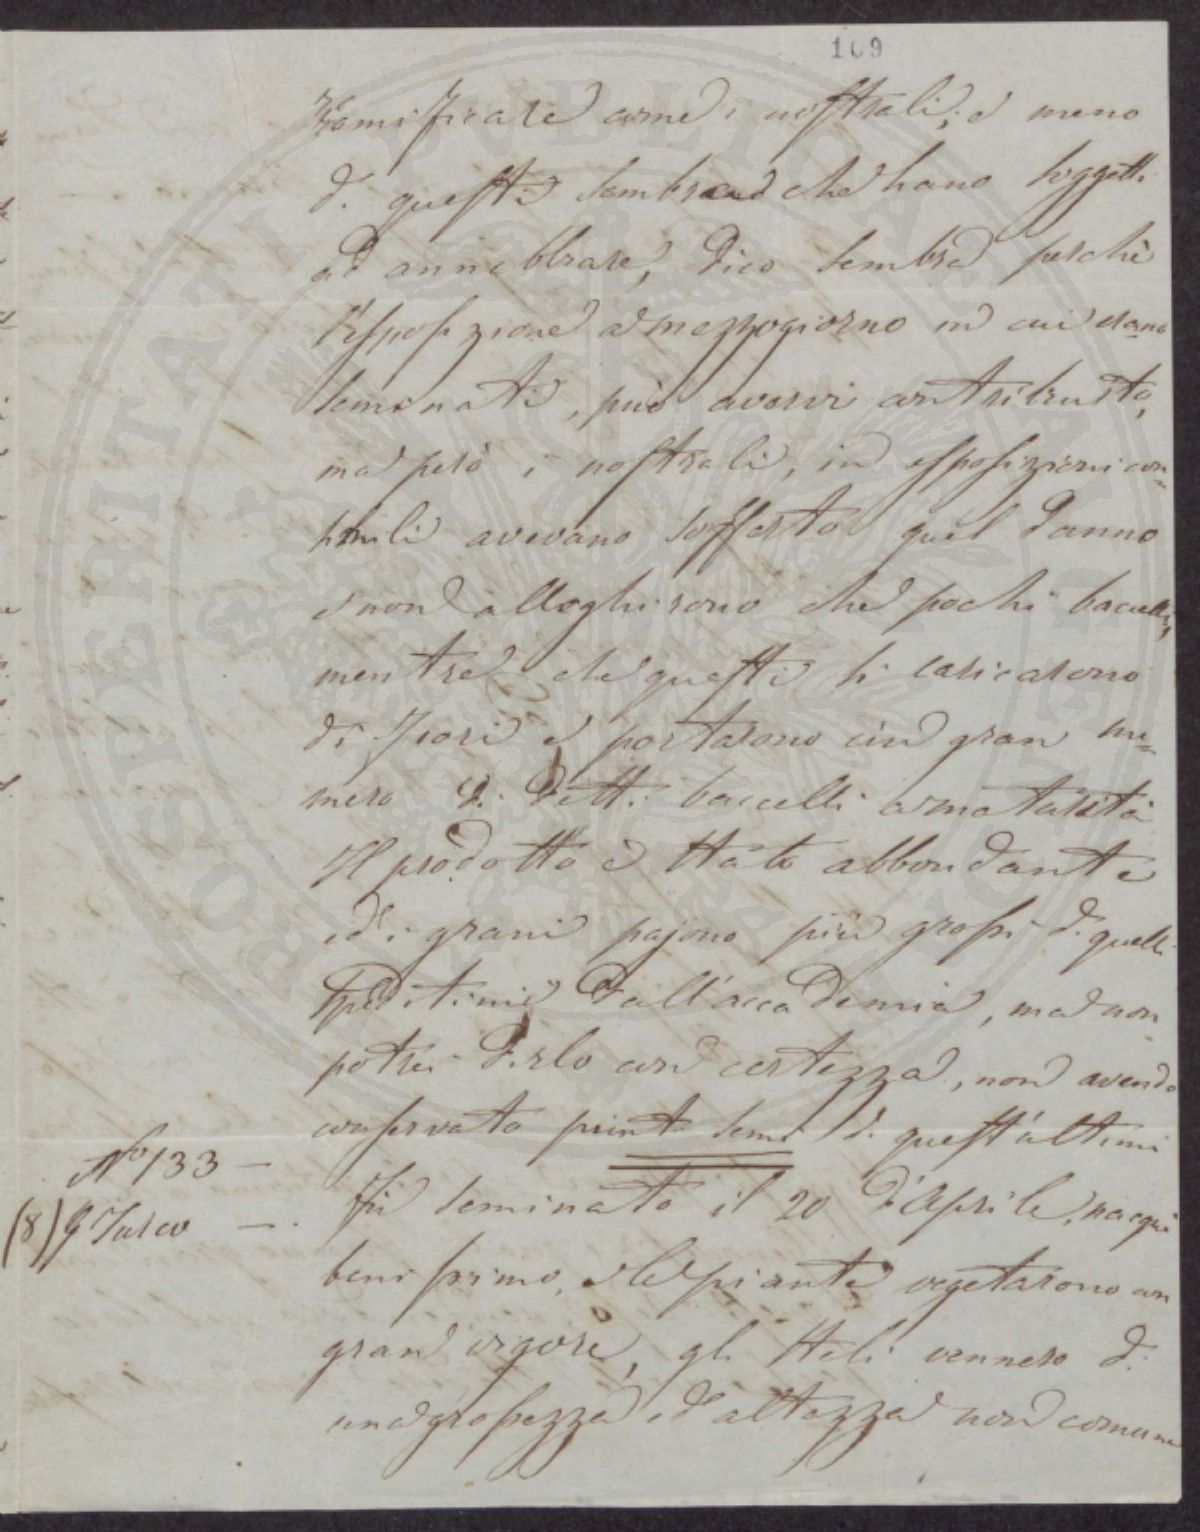 109
Ramificare come i nostrali, e meno
di questi sembrae che siano soggetti
ad annebbiare, dico sembra perchè
l'esposizione a mezzogiorno in cui erano
seminati, può avervi contribuito,
ma però i nostrali, in esposizioni con=
simili avevano sofferto quel danno
e non alleghirono che pochi baccelli,
mentre che questi si caricarono
di fiori e portarono un gran nu=
mero di detti baccelli a maturità
Il prodotto è stato abbondante
ed i grani pajono più grossi di quelli
speditimi dall'accademia, ma non
potrei dirlo con certezza, non avendo
conservato punti semi di quest'ultimi
N.º 133 —
(8) G Turco —. Fù seminato il 20 d'Aprile, nacque
benissimo, e le piante vegetarono con
gran vigore, gli steli vennero di
una grossezza ed altezza non comune
PROSPERITATI PUBLICAE AUGENDAE